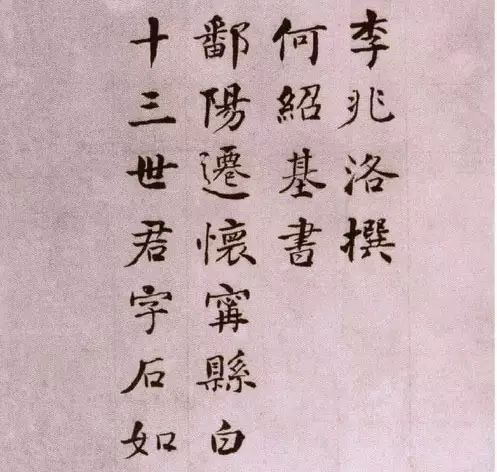 李兆洛撰
何紹基書
鄱陽遷懷甯縣白
十三世君字石如